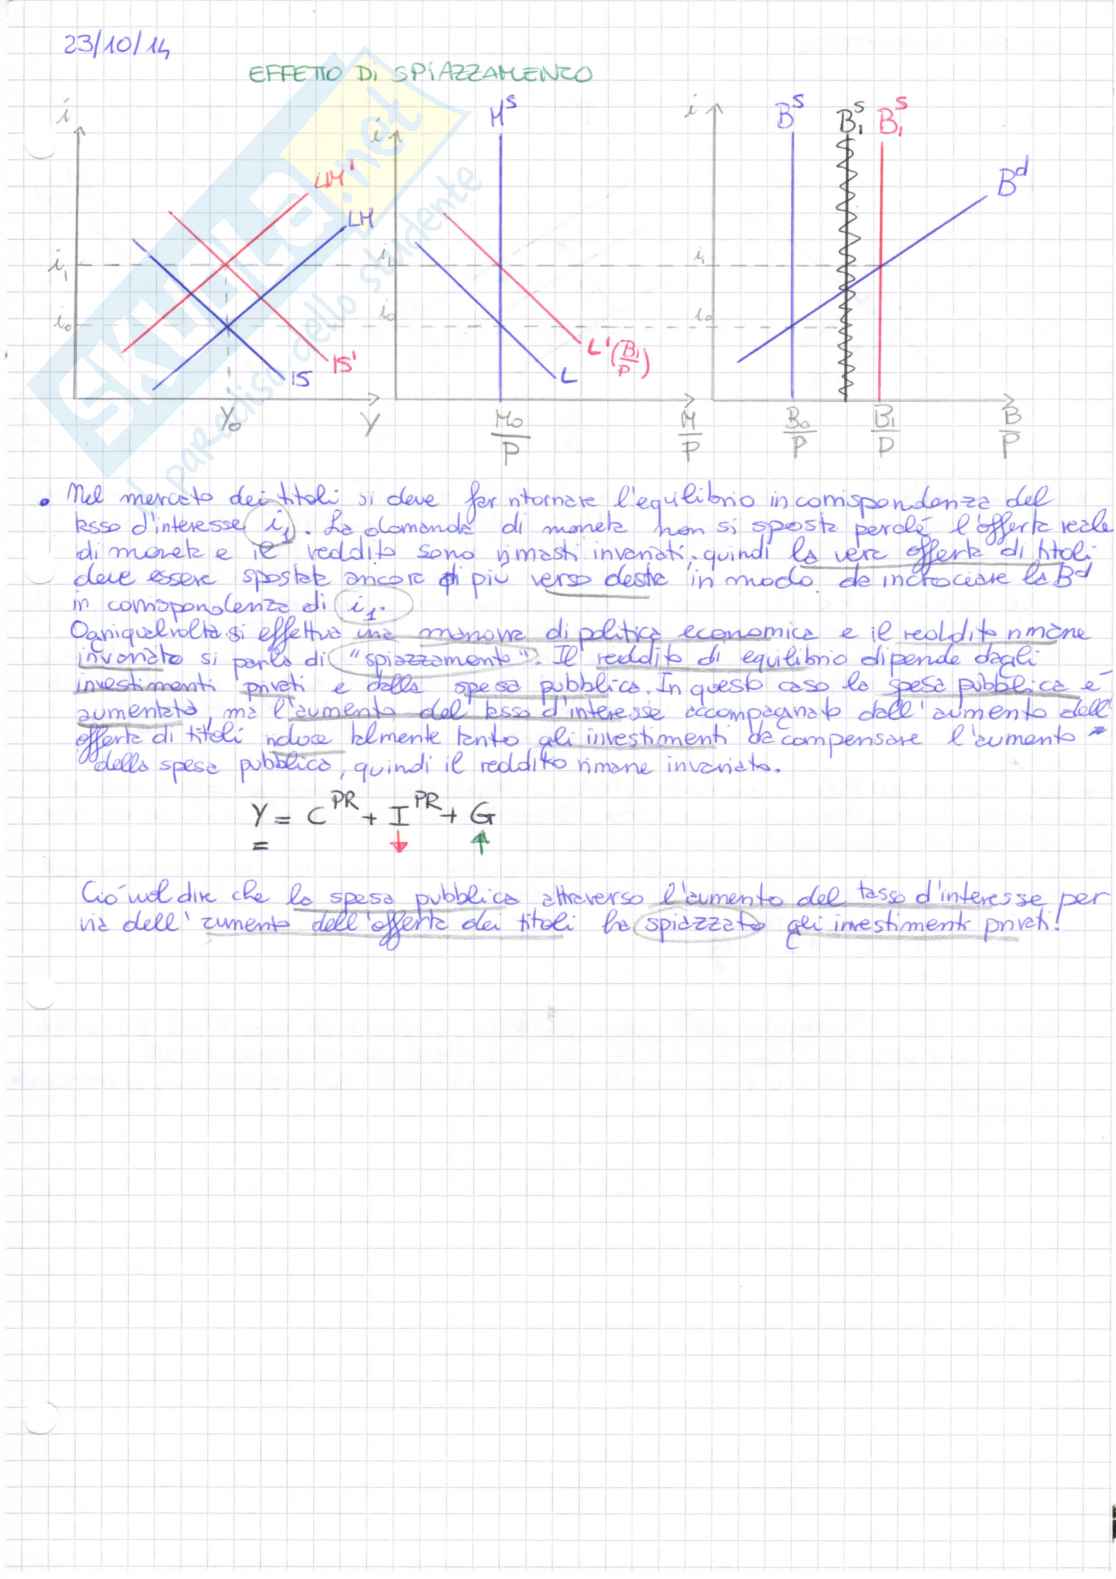 23/10/14
EFFETTO DI SPIAZZAMENTO
i
LM'
LM
i₁
i₀
IS
IS'
Y₀
Y
i
Mˢ
i₁
i₀
L'(B₁/P)
L
M₀/P
M/P
i
Bˢ
B₁ˢ
B₁ˢ
Bᵈ
i₁
i₀
B₀/P
B₁/P
B/P
SKUOLA.net
il paradiso dello studente
• Nel mercato dei titoli si deve far ritornare l'equilibrio in corrispondenza del
tasso d'interesse i₁. La domanda di moneta non si sposta perché l'offerta reale
di moneta e il reddito sono rimasti invariati, quindi la vera offerta di titoli
deve essere spostata ancora di più verso destra in modo da incrociare la Bᵈ
in corrispondenza di i₁.
Ogniqualvolta si effettua una manovra di politica economica e il reddito rimane
invariato si parla di "spiazzamento". Il reddito di equilibrio dipende dagli
investimenti privati e dalla spesa pubblica. In questo caso la spesa pubblica è
aumentata, ma l'aumento del tasso d'interesse accompagnato dall'aumento dell'
offerta di titoli riduce talmente tanto gli investimenti da compensare l'aumento
della spesa pubblica, quindi il reddito rimane invariato.
Y = Cᴾᴿ + Iᴾᴿ + G
= ↓ ↑
Ciò vuol dire che la spesa pubblica attraverso l'aumento del tasso d'interesse per
via dell'aumento dell'offerta dei titoli ha spiazzato gli investimenti privati!